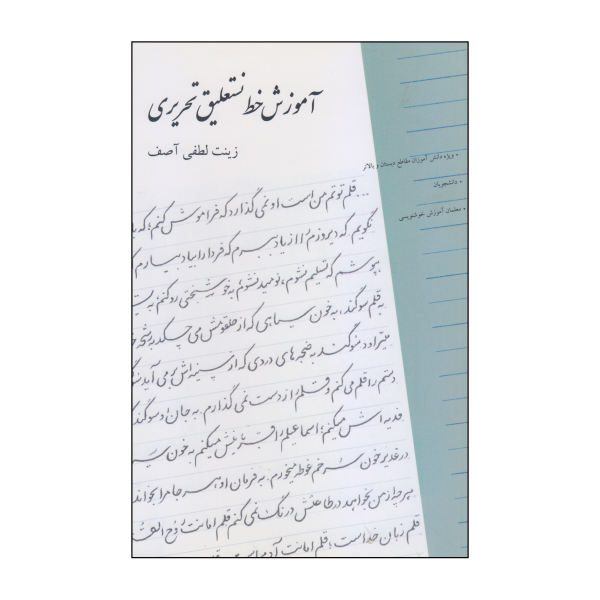 آموزش خط نستعلیق تحریری
زینت لطفی آصف
• ویژه دانش آموزان مقاطع دبستان و بالاتر
• دانشجویان
• معلمان آموزش خوشنویسی
... قلم توتم من است او نمی گذارد که فراموش کنم؛ که با
نگویم که دیروزم را از یاد ببرم که فردا را بیاد بیارم
بپوشم که تسلیم نشوم، نومید نشوم به خوشبختی رو کنم
به قلم سوگند، به خون سیاهی که از حلقومش می چکد به رشحه
میتراود سوگند به ضجه های دردی که از سینه اش بر می آید
دستم را قلم می کنم و قلم را از دست نمی گذارم. به جان او سوگند
فدیه اش میکنم؛ اسماعیلم را قربانیش میکنم به خون
در غدیر خون سرخم غوطه میخورم. به فرمان او، هر جا مرا بخواند
هر چه از من بخواهد در طاعتش درنگ نمی کنم قلم امانت روح القد
قلم زبان خداست؛ قلم امانت آدم است